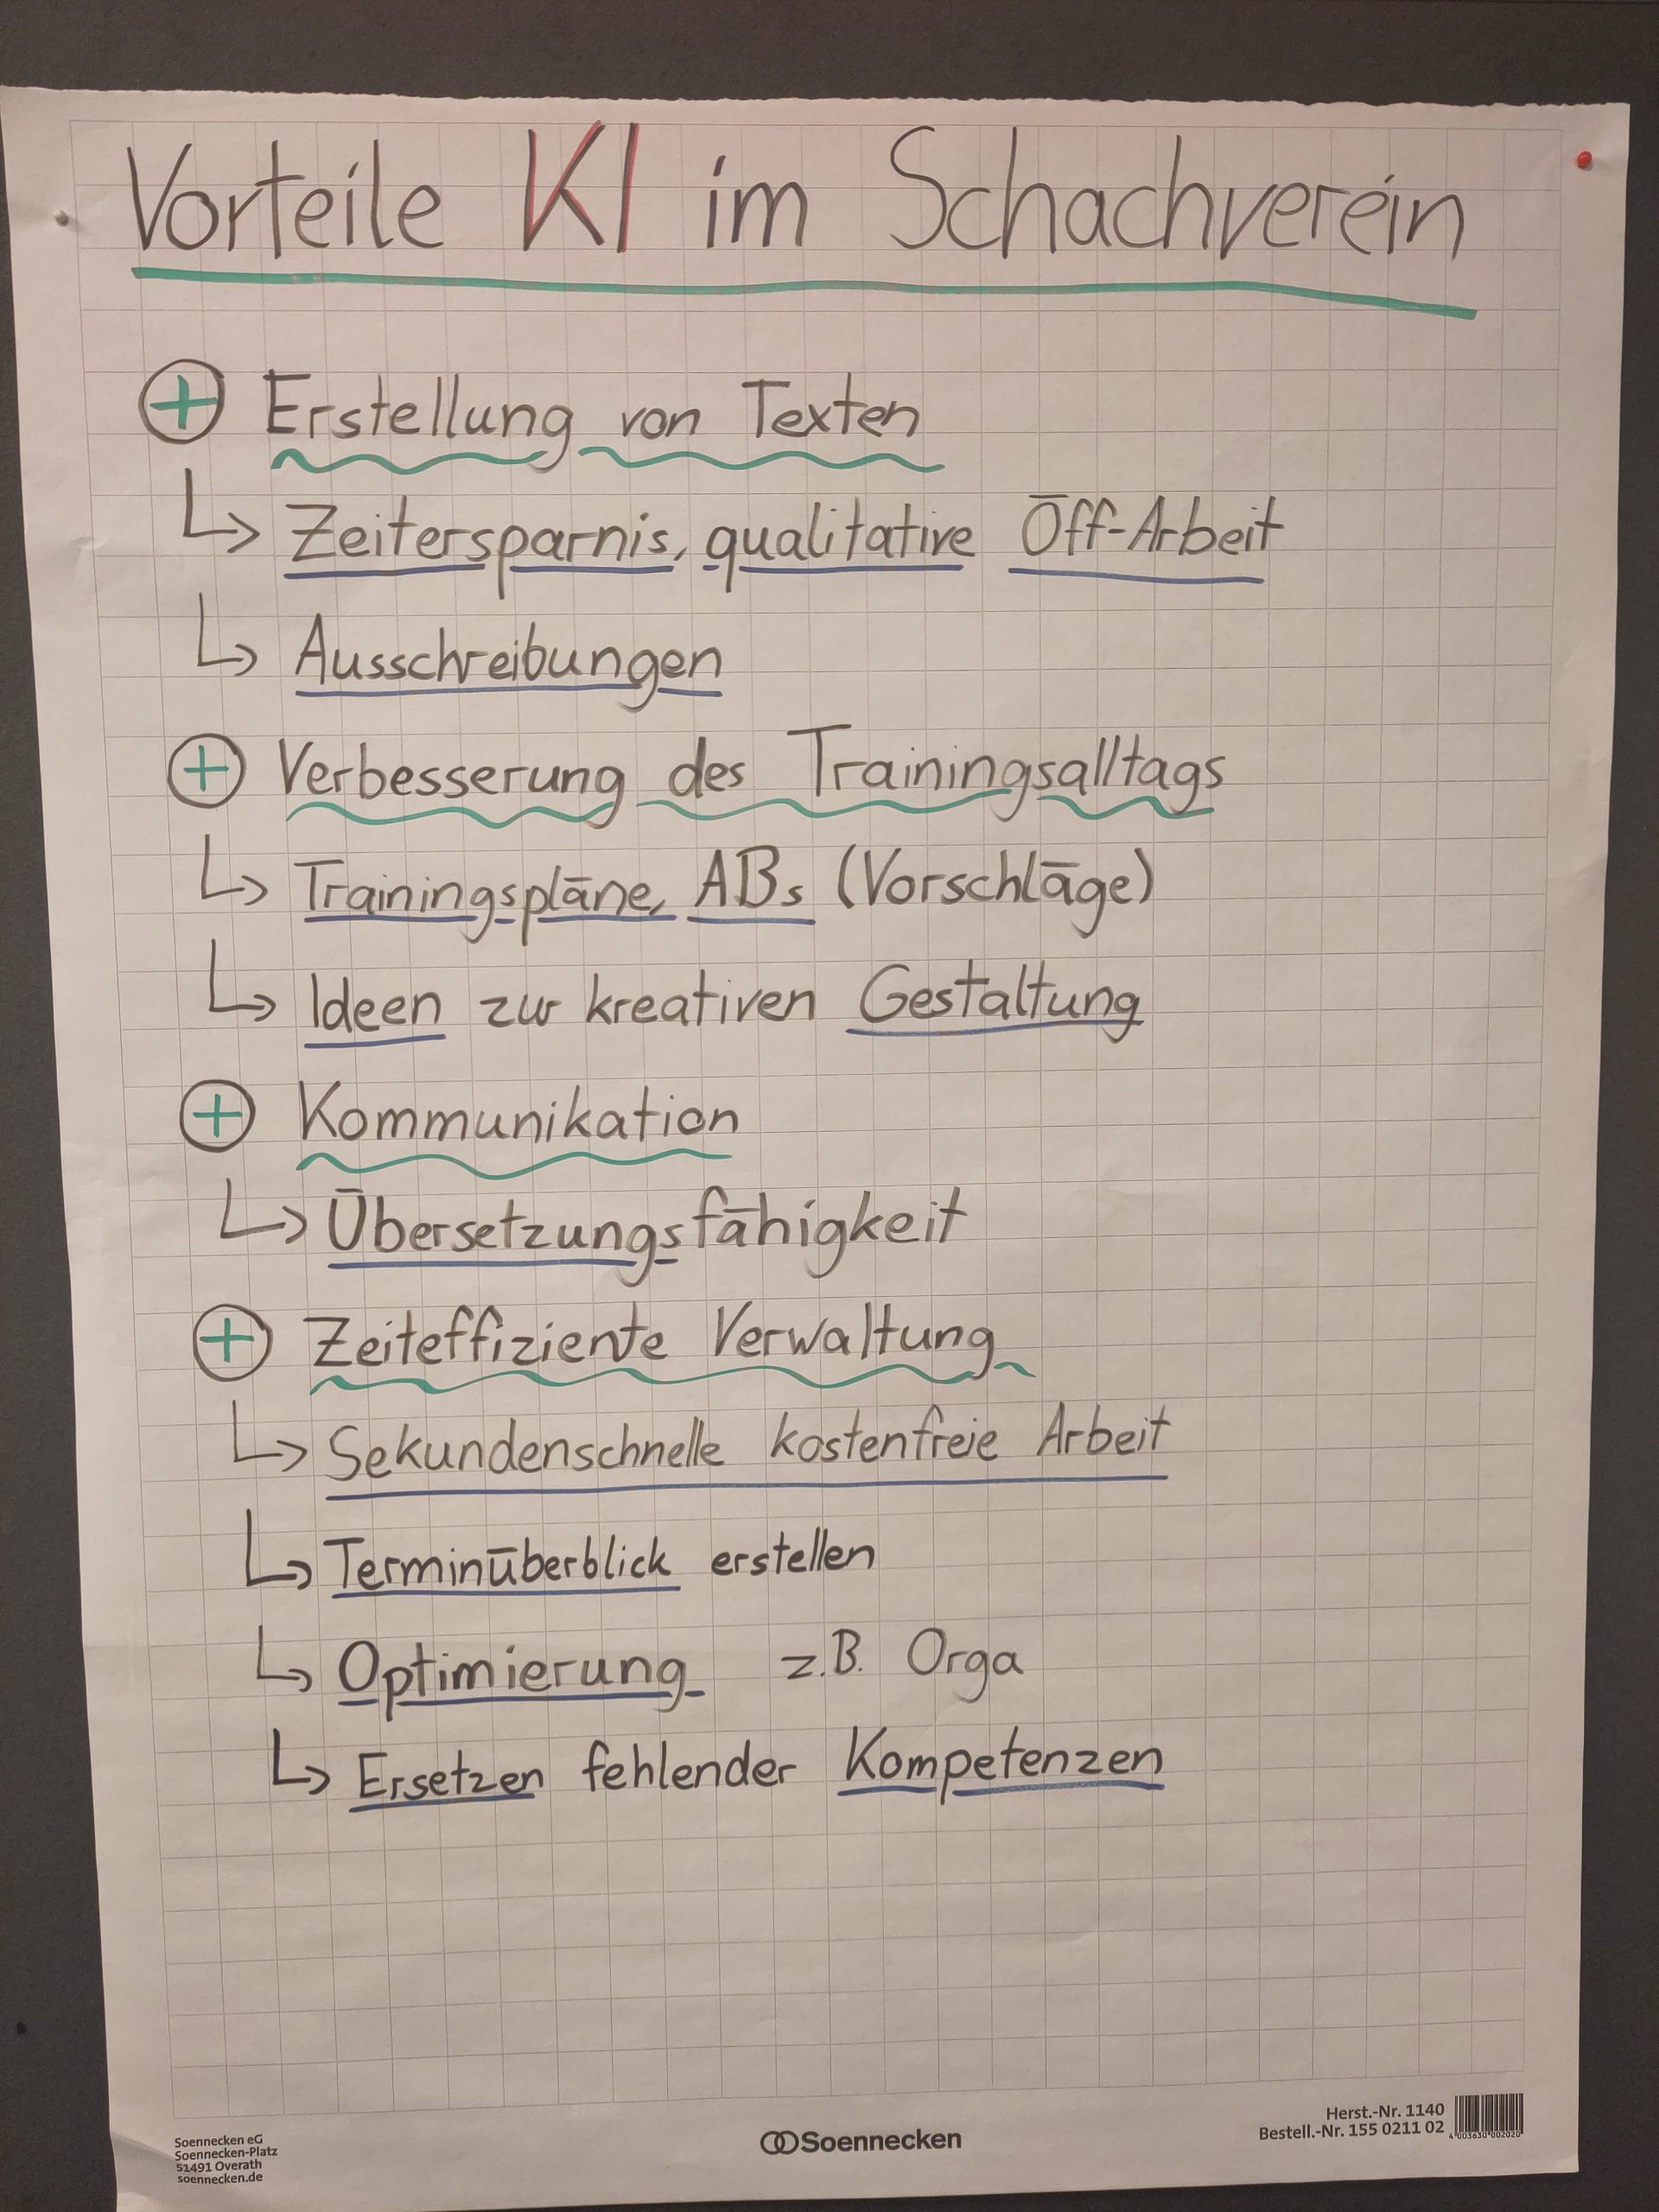 Vorteile KI im Schachverein
+ Erstellung von Texten
↳ Zeitersparnis, qualitative Öff-Arbeit
↳ Ausschreibungen
+ Verbesserung des Trainingsalltags
↳ Trainingspläne, ABs (Vorschläge)
↳ Ideen zur kreativen Gestaltung
+ Kommunikation
↳ Übersetzungsfähigkeit
+ Zeiteffiziente Verwaltung
↳ Sekundenschnelle kostenfreie Arbeit
↳ Terminüberblick erstellen
↳ Optimierung z.B. Orga
↳ Ersetzen fehlender Kompetenzen
Soennecken eG
Soennecken-Platz
51491 Overath
soennecken.de
Soennecken
Herst.-Nr. 1140
Bestell.-Nr. 155 0211 02
4 003630 002020